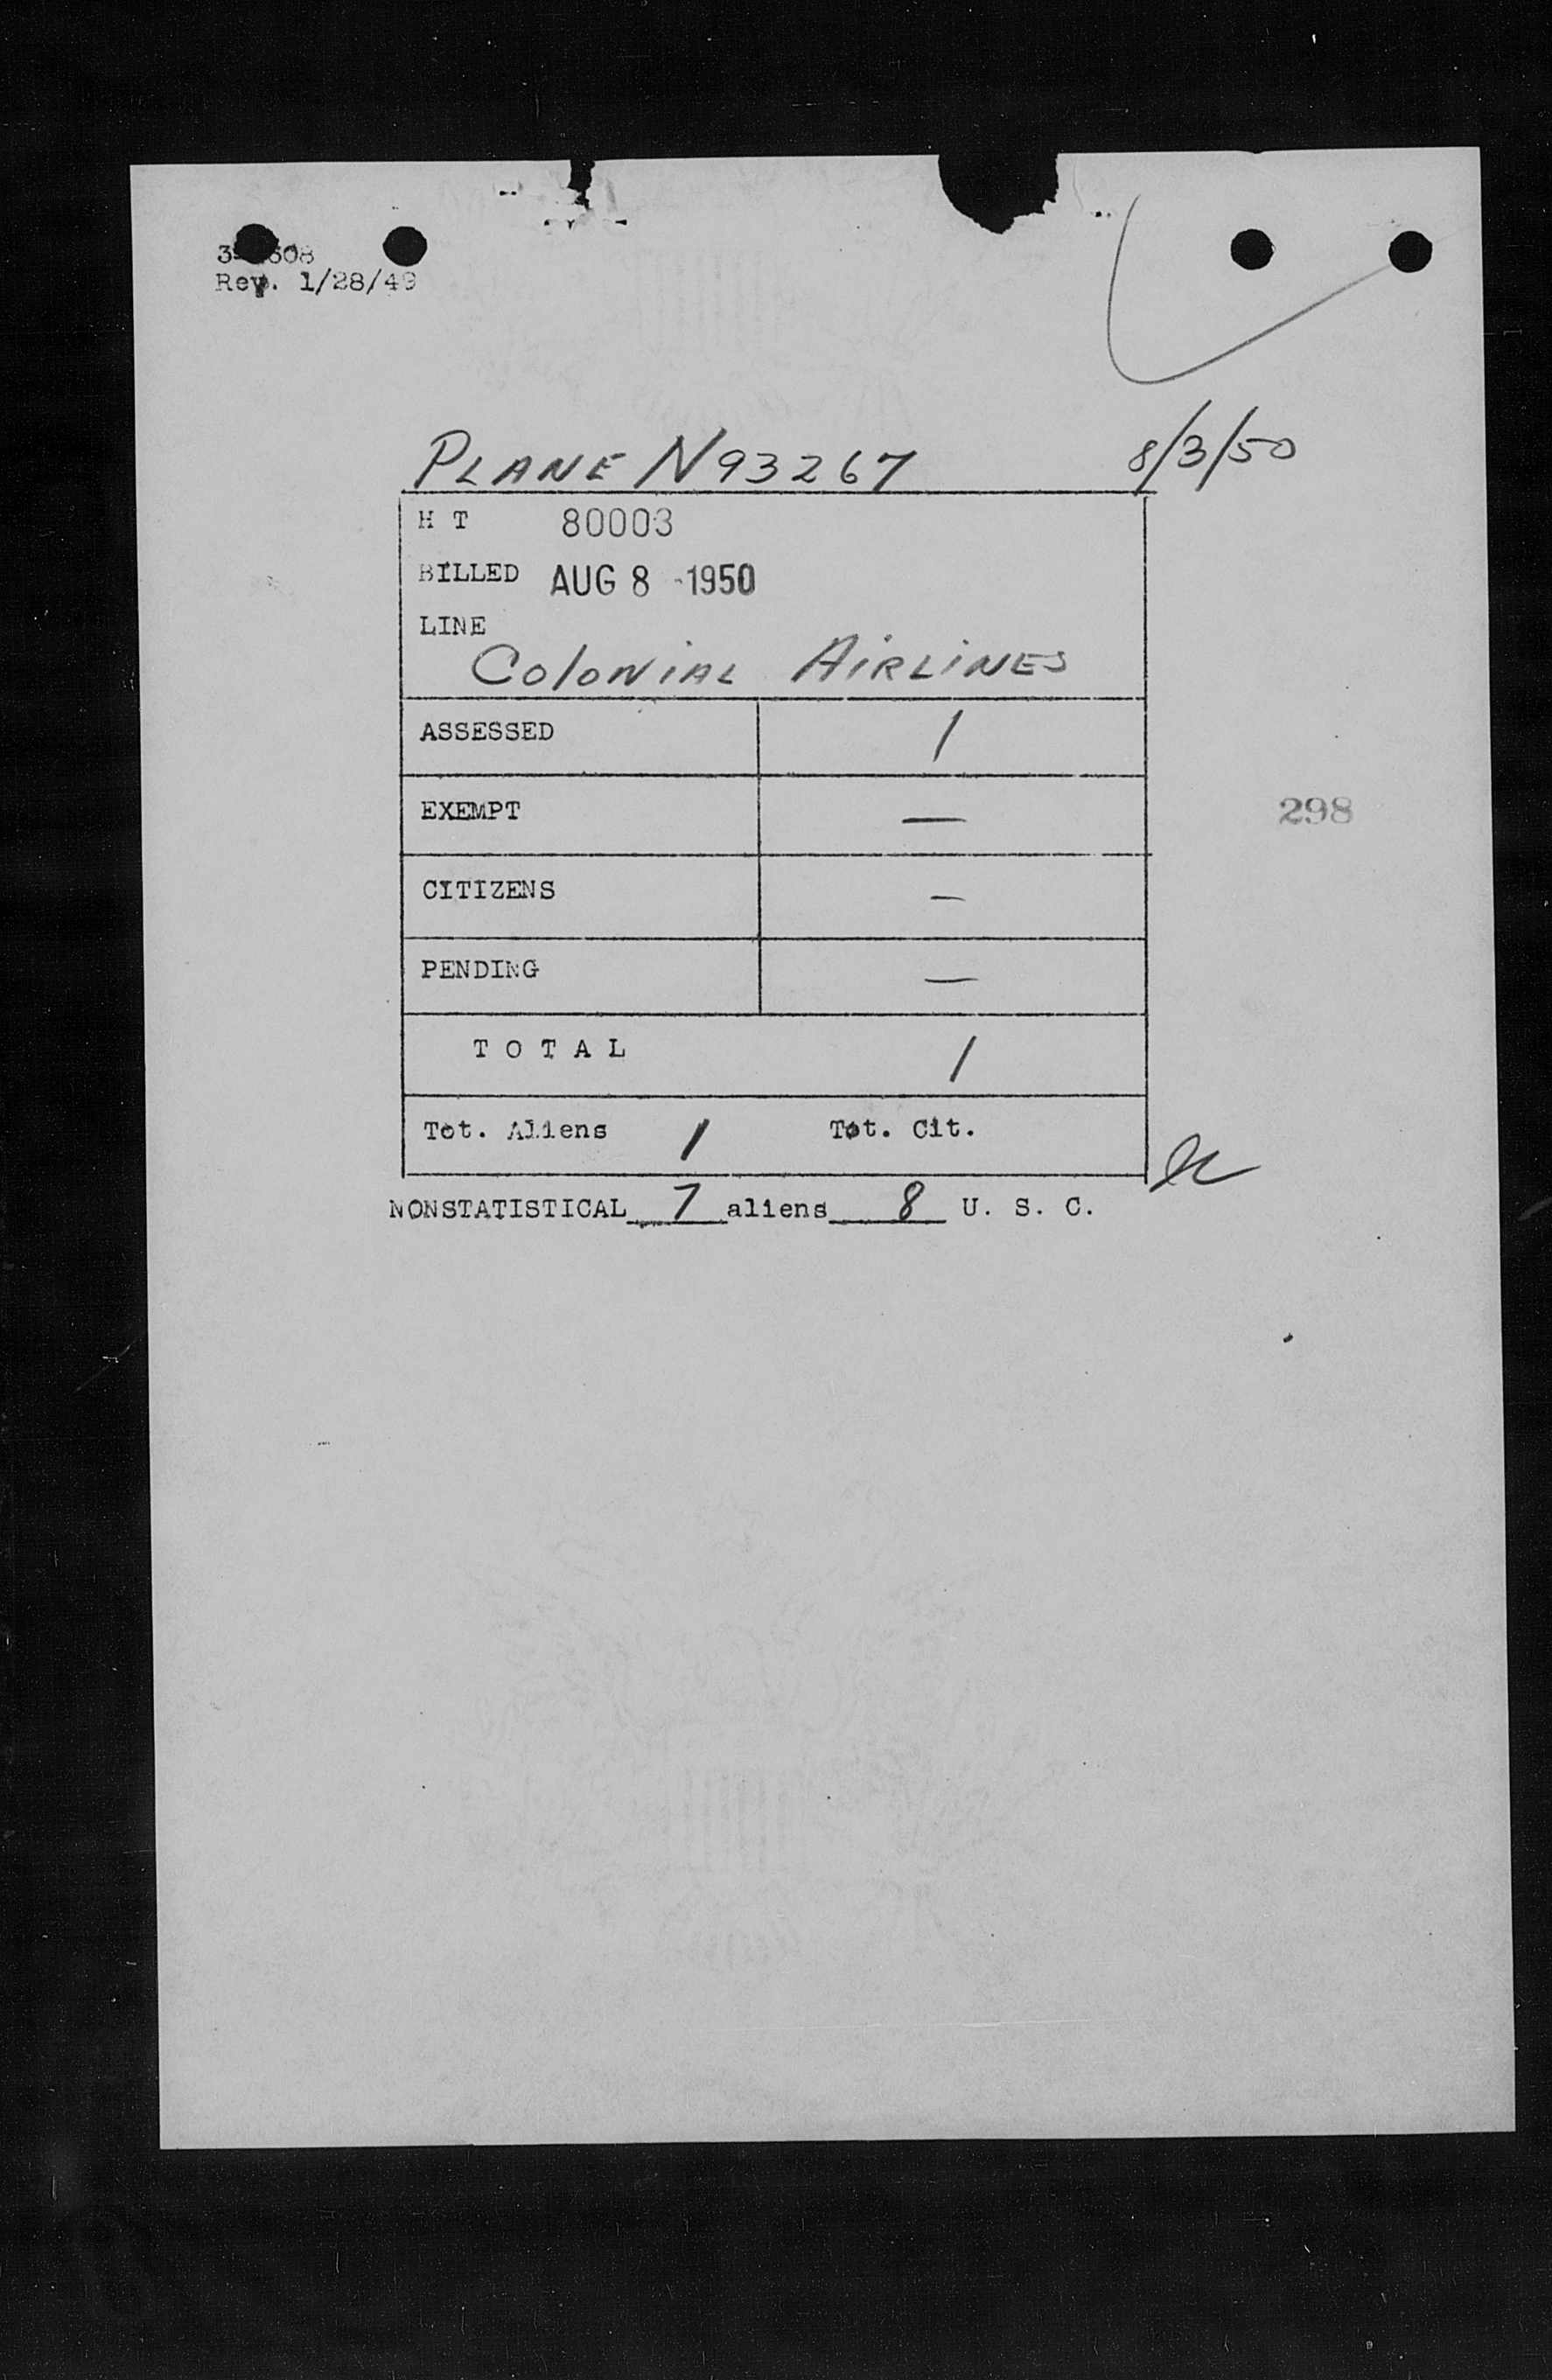 Rev. 1/28/49
PLANE N93267 8/3/50
H T 80003
BILLED AUG 8 - 1950
LINE
COLONIAL AIRLINES
ASSESSED 1
EXEMPT —
298
CITIZENS —
PENDING —
T O T A L 1
Tot. Aliens 1 Tot. Cit.
NONSTATISTICAL 7 aliens 8 U. S. C.